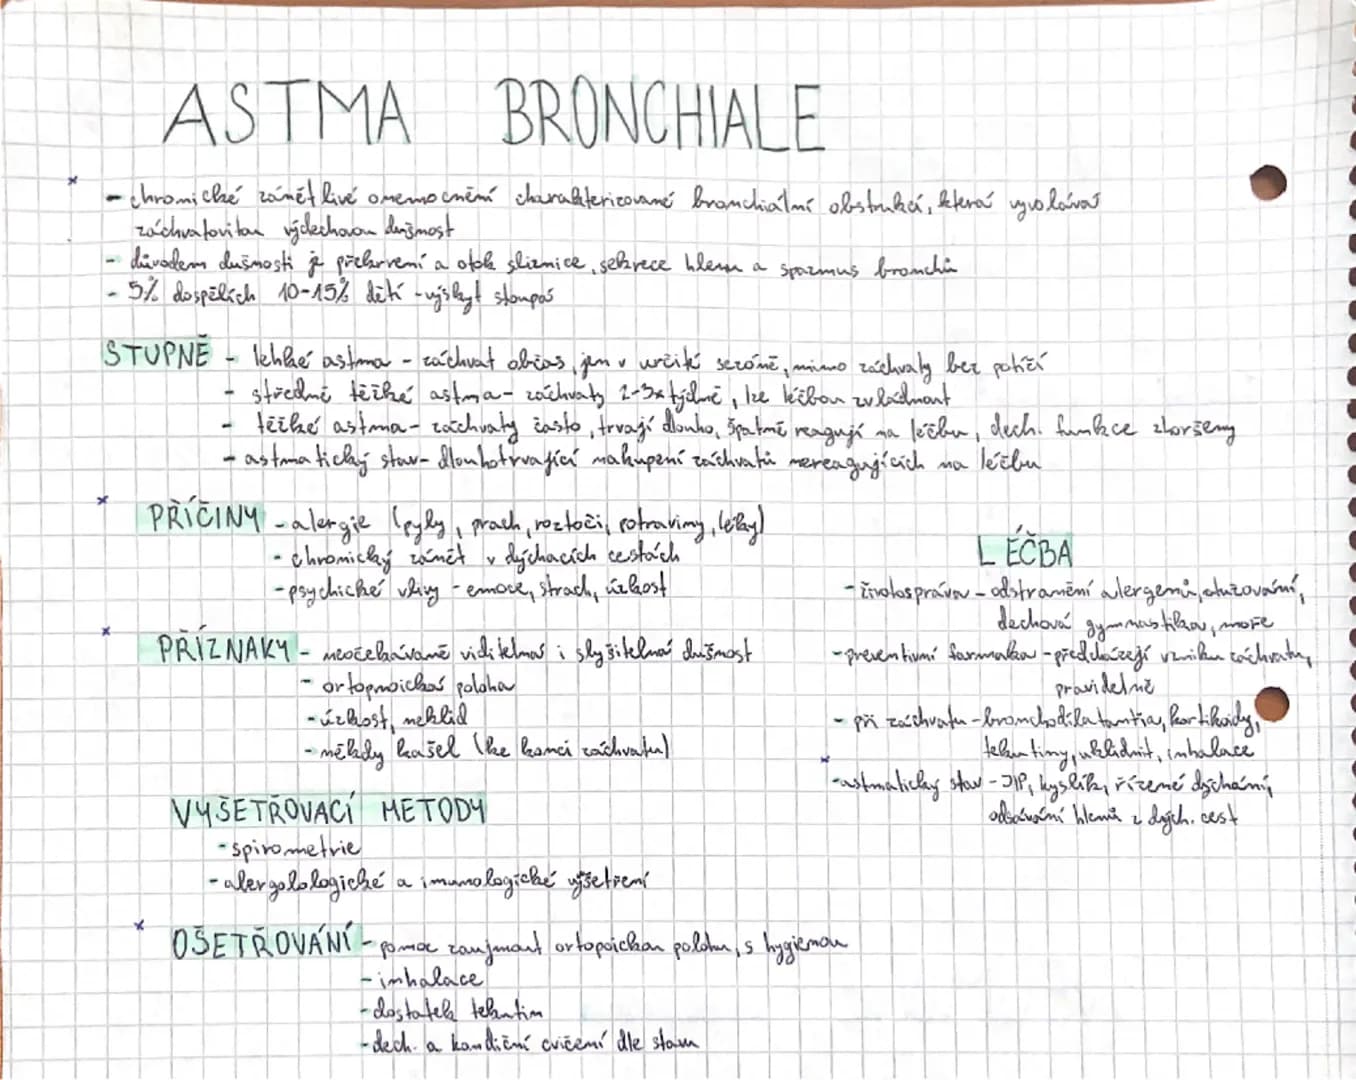 ASTMA BRONCHIALE
- chronické zánětlivé onemocnění charakterizované bronchiální obstrukcí, která vyvolává
záchvatovitou výdechovou dušnost
- důvodem dušnosti je překrvení a otok sliznice, sekrece hlenu a spazmus bronchů
- 5% dospělích 10-15% dětí - výskyt stoupá
STUPNĚ - lehké astma - záchvat občas, jen v určité sezóně, mimo záchvaty bez potíží
- středně těžké astma - záchvaty 2-3x týdně, lze léčbou zvládnout
- těžké astma - záchvaty často, trvají dlouho, špatně reagují na léčbu, dech. funkce zhoršeny
- astmatický stav - dlouhotrvající nakupení záchvatů nereagujících na léčbu
PŘÍČINY - alergie (pyly, prach, roztoči, potraviny, léky)
- chronický zánět v dýchacích cestách
- psychické vlivy - emoce, strach, úzkost
PŘÍZNAKY - neočekávaně viditelná i slyšitelná dušnost
- ortopnoická poloha
- úzkost, neklid
- někdy kašel (ke konci záchvatu)
VYŠETŘOVACÍ METODY
- spirometrie
- alergolologické a imunologické vyšetření
OŠETŘOVÁNÍ - pomoc zaujmout ortopoickou polohu, s hygienou
- inhalace
- dostatek tekutin
- dech. a kondiční cvičení dle stavu
LÉČBA
- životospráva - odstranění alergenů, otužování,
dechová gymnastika, moře
- preventivní farmaka - předcházejí vzniku záchvatu,
pravidelně
- při záchvatu - bronchodilatantia, kortikoidy,
tekutiny, uklidnit, inhalace
- astmatický stav - JIP, kyslík, řízené dýchání,
odsávání hlenů z dých. cest